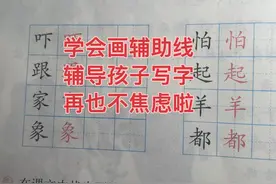 吓 怕 怕
跟 起 起
家 羊 羊
象 象 都 都
学会画辅助线
辅导孩子写字
再也不焦虑啦